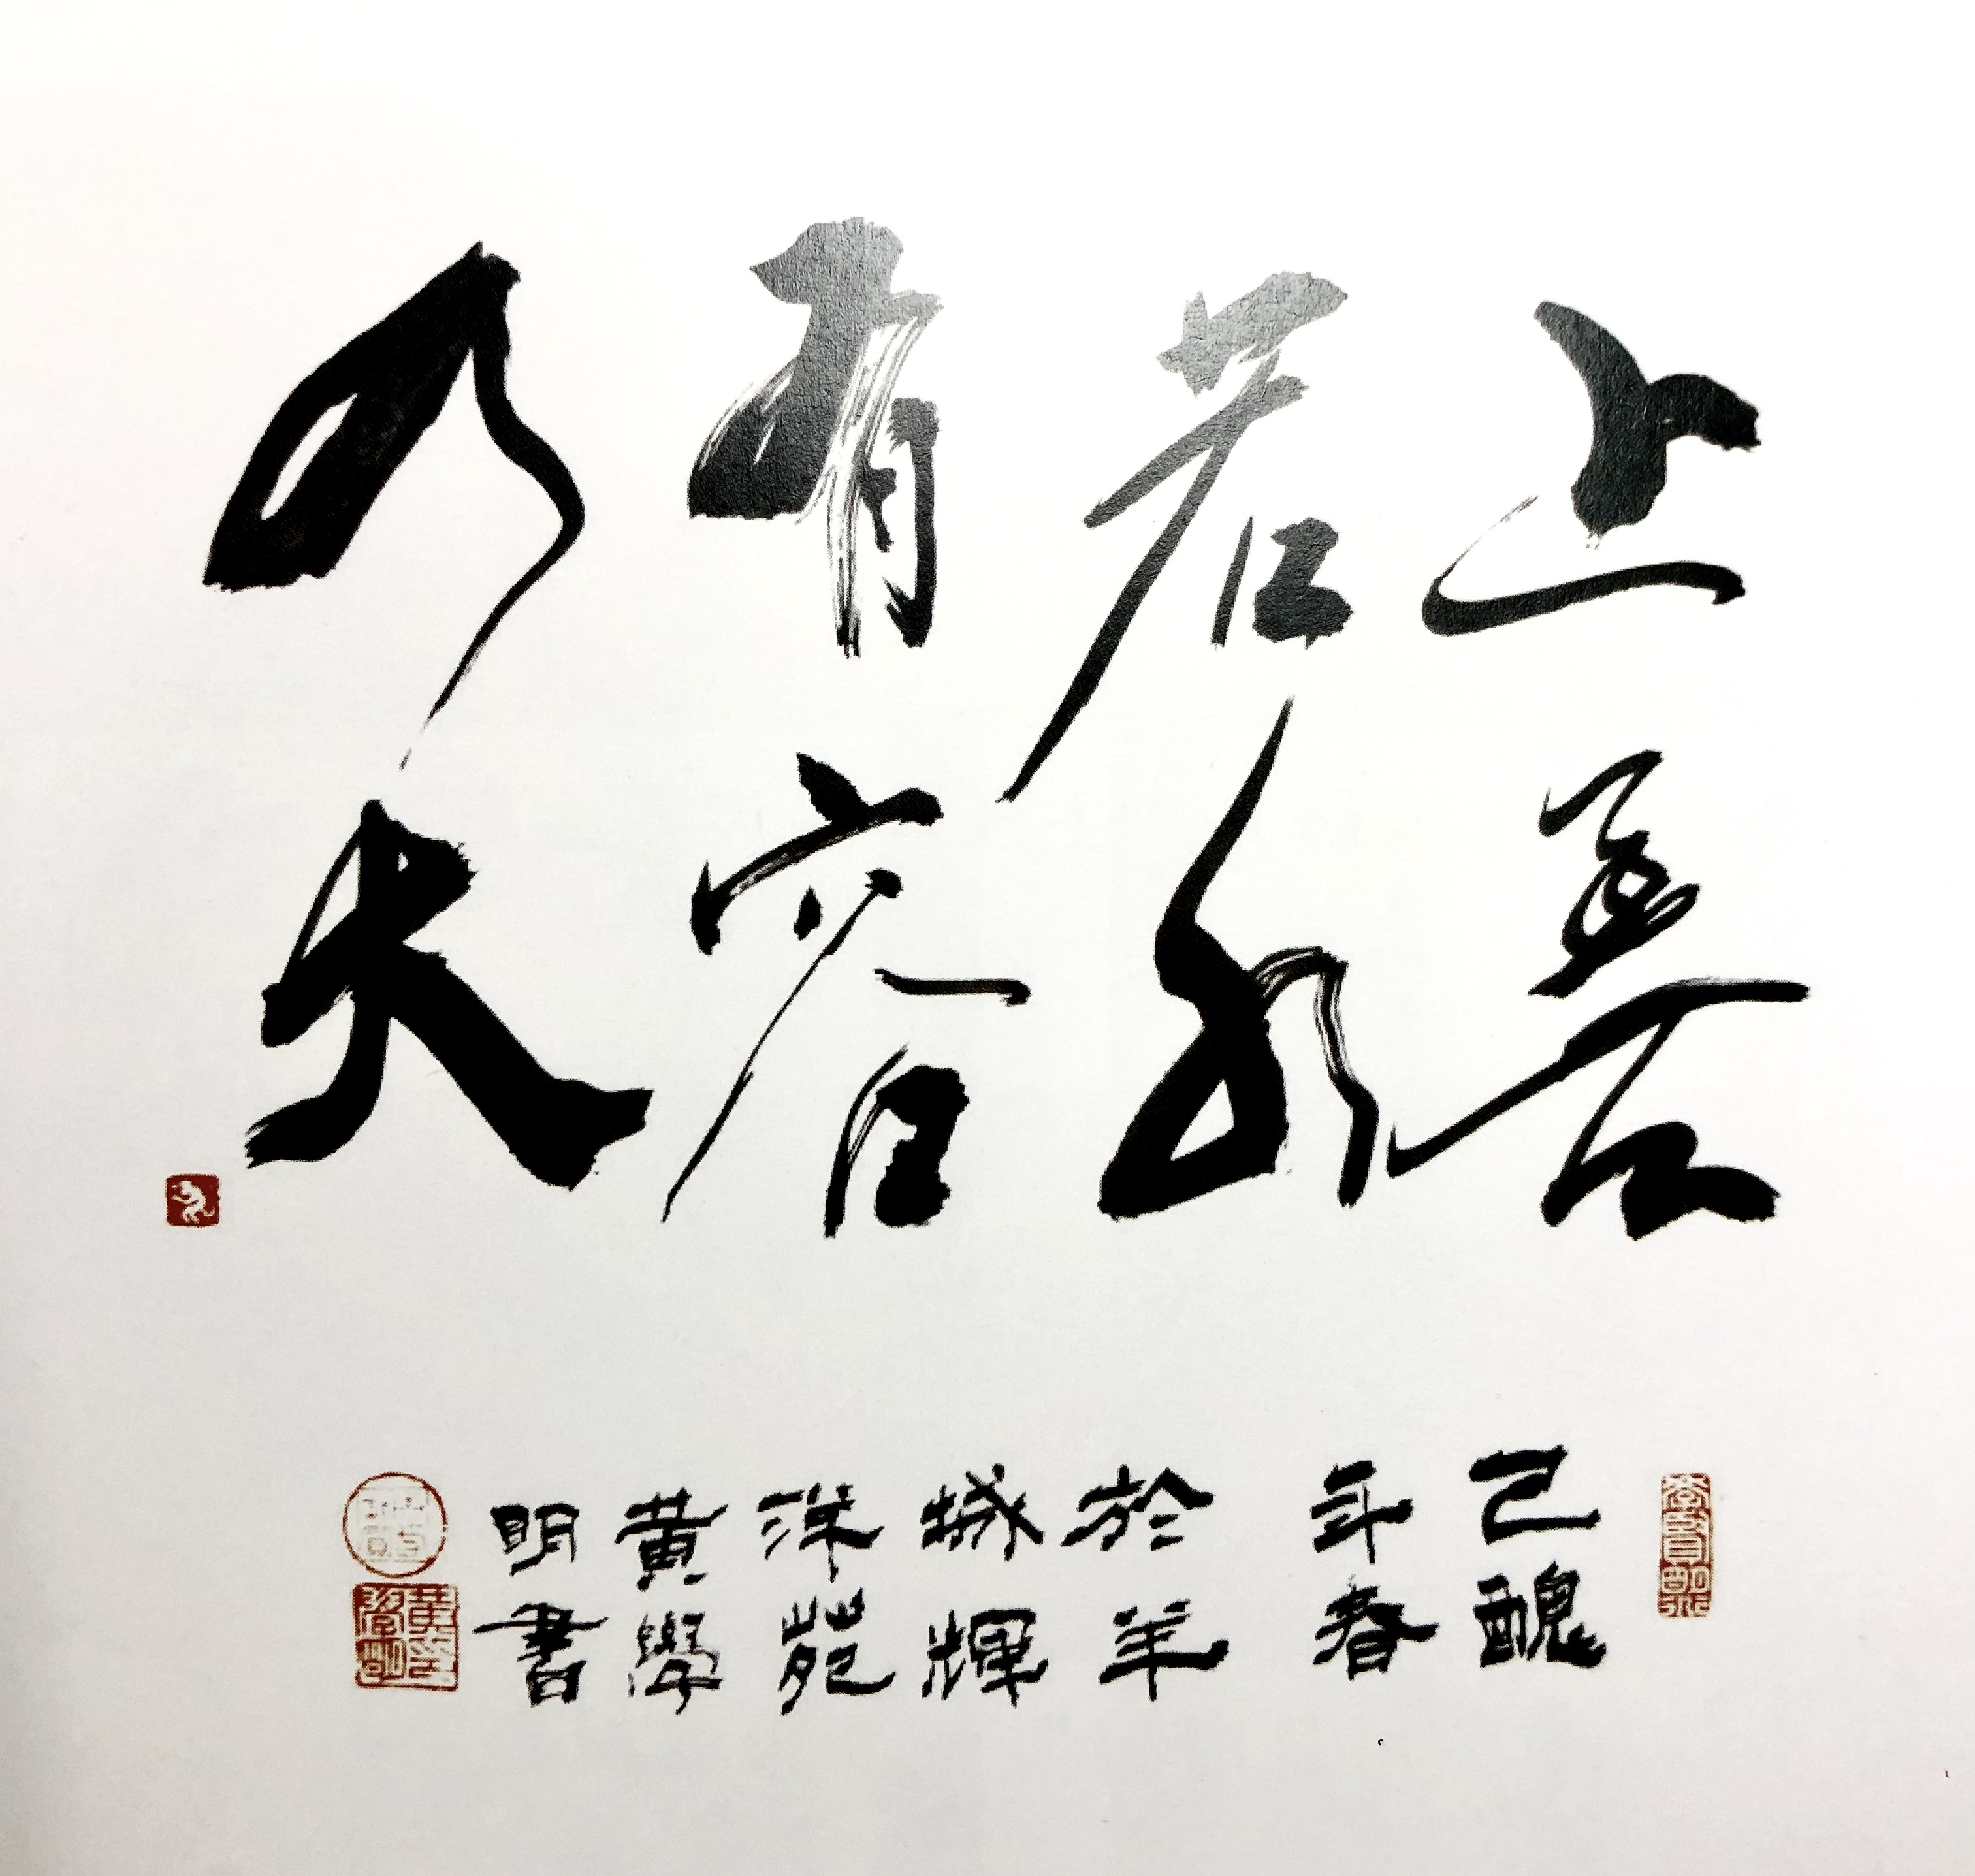 上善
若水
有容
乃大
己醜
年春
於羊
城輝
洋苑
黄學
明書